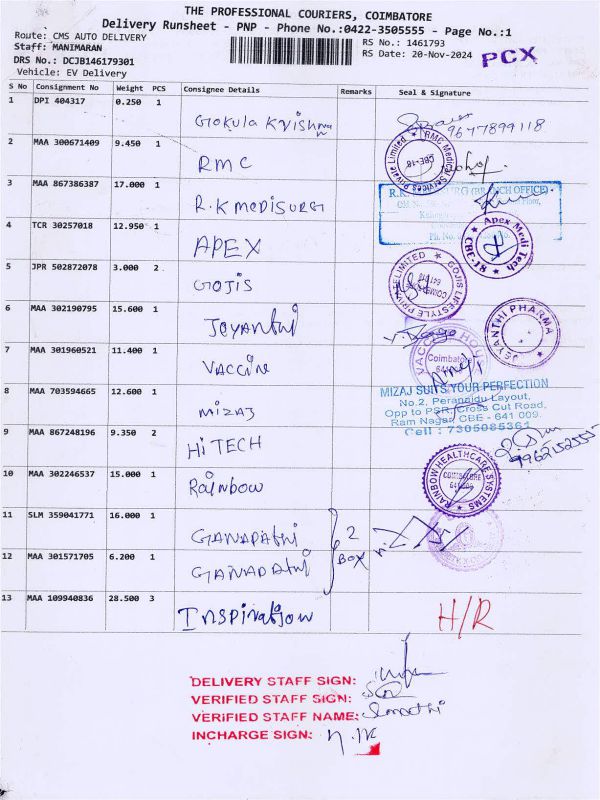 THE PROFESSIONAL COURIERS, COIMBATORE
Delivery Runsheet - PNP - Phone No.:0422-3505555 - Page No.:1
Route: CMS AUTO DELIVERY
Staff: MANIMARAN
DRS No.: DCJB146179301
Vehicle: EV Delivery
RS No.: 1461793
RS Date: 20-Nov-2024
PCX
S No Consignment No Weight PCS Consignee Details Remarks Seal & Signature
1 DPI 404317 0.250 1 Gokula Krishna 9677899118
2 MAA 300671409 9.450 1 RMC
RMC Medical Services Private Limited CBE-18
3 MAA 867386387 17.000 1 R.K MEDISURG
R.K. (BRANCH OFFICE)
4 TCR 30257018 12.950 1 APEX
Apex Medi Tech CBE-18
5 JPR 502872078 3.000 2 GOJIS
GOJIS LIFESTYLE PRIVATE LIMITED
6 MAA 302190795 15.600 1 Joyanthi
JEYANTHI PHARMA
7 MAA 301960521 11.400 1 VACCINE
VACCINE HOUSE Coimbatore
8 MAA 703594665 12.600 1 MIZAJ
MIZAJ SUITS YOUR PERFECTION
No.2, Peranaidu Layout,
Opp to PSR, Cross Cut Road,
Ram Nagar, CBE - 641 009.
Cell : 7305085361
9 MAA 867248196 9.350 2 Hi TECH
10 MAA 302246537 15.000 1 Rainbow
RAINBOW HEALTHCARE SYSTEMS COIMBATORE
11 SLM 359041771 16.000 1 GANAPATHI
2 BOX
12 MAA 301571705 6.200 1 GANAPATHI
13 MAA 109940836 28.500 3 INSPIRATION H/R
DELIVERY STAFF SIGN:
VERIFIED STAFF SIGN:
VERIFIED STAFF NAME:
INCHARGE SIGN: